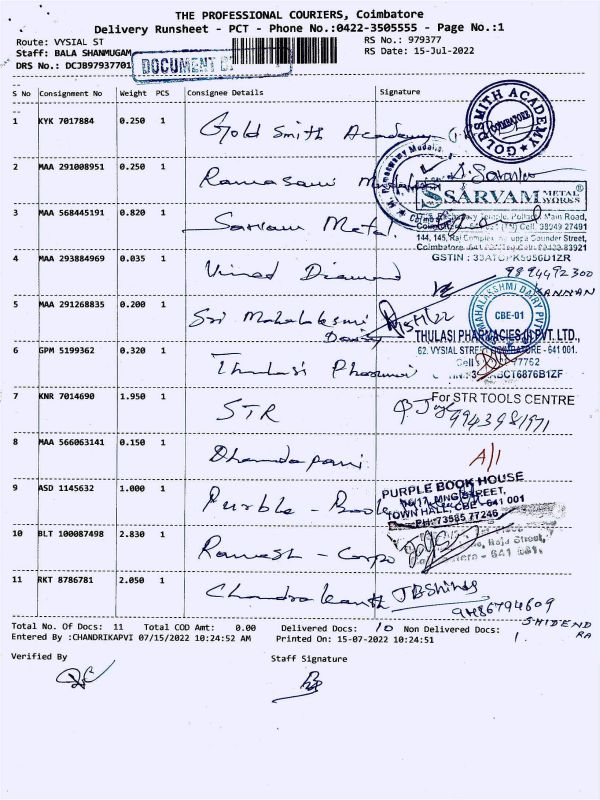 THE PROFESSIONAL COURIERS, Coimbatore
Delivery Runsheet - PCT - Phone No.:0422-3505555 - Page No.:1
Route: VYSIAL ST
RS No.: 979377
Staff: BALA SHANMUGAM
RS Date: 15-Jul-2022
DRS No.: DCJB97937701
DOCUMENT
S No Consignment No Weight PCS Consignee Details Signature
1 KYK 7017884 0.250 1 Gold Smith Academy
GOLDSMITH ACADEMY
COIMBATORE
2 MAA 291008951 0.250 1 Ramasami
SARVAM METAL WORKS
3 MAA 568445191 0.820 1 Sarvam Metal
Main Road,
Cell: 98949 27491
144, 145, Raj Complex, Gounder Street,
GSTIN : 33ATGPK5056D1ZR
4 MAA 293884969 0.035 1 Vinod Diamond
9994492300
KANNAN
5 MAA 291268835 0.200 1 Sri Mahalakshmi Dairy
MAHALAKSHMI DAIRY PVT
CBE-01
THULASI PHARMACIES PVT. LTD.,
62, VYSIAL STREET, COIMBATORE - 641 001.
6 GPM 5199362 0.320 1 Thulasi Pharmaci
7 KNR 7014690 1.950 1 STR
For STR TOOLS CENTRE
9943981971
8 MAA 566063141 0.150 1 Dhandapani
A/1
9 ASD 1145632 1.000 1 Purble - Book
PURPLE BOOK HOUSE
TOWN HALL, CBE - 641 001
PH: 73585 77246
10 BLT 100087498 2.830 1 Ramesh - Corpo
11 RKT 8786781 2.050 1 Chandrakanth
9486794609
Total No. Of Docs: 11 Total COD Amt: 0.00 Delivered Docs: 10 Non Delivered Docs: 1.
Entered By :CHANDRIKAPVI 07/15/2022 10:24:52 AM Printed On: 15-07-2022 10:24:51
Verified By Staff Signature